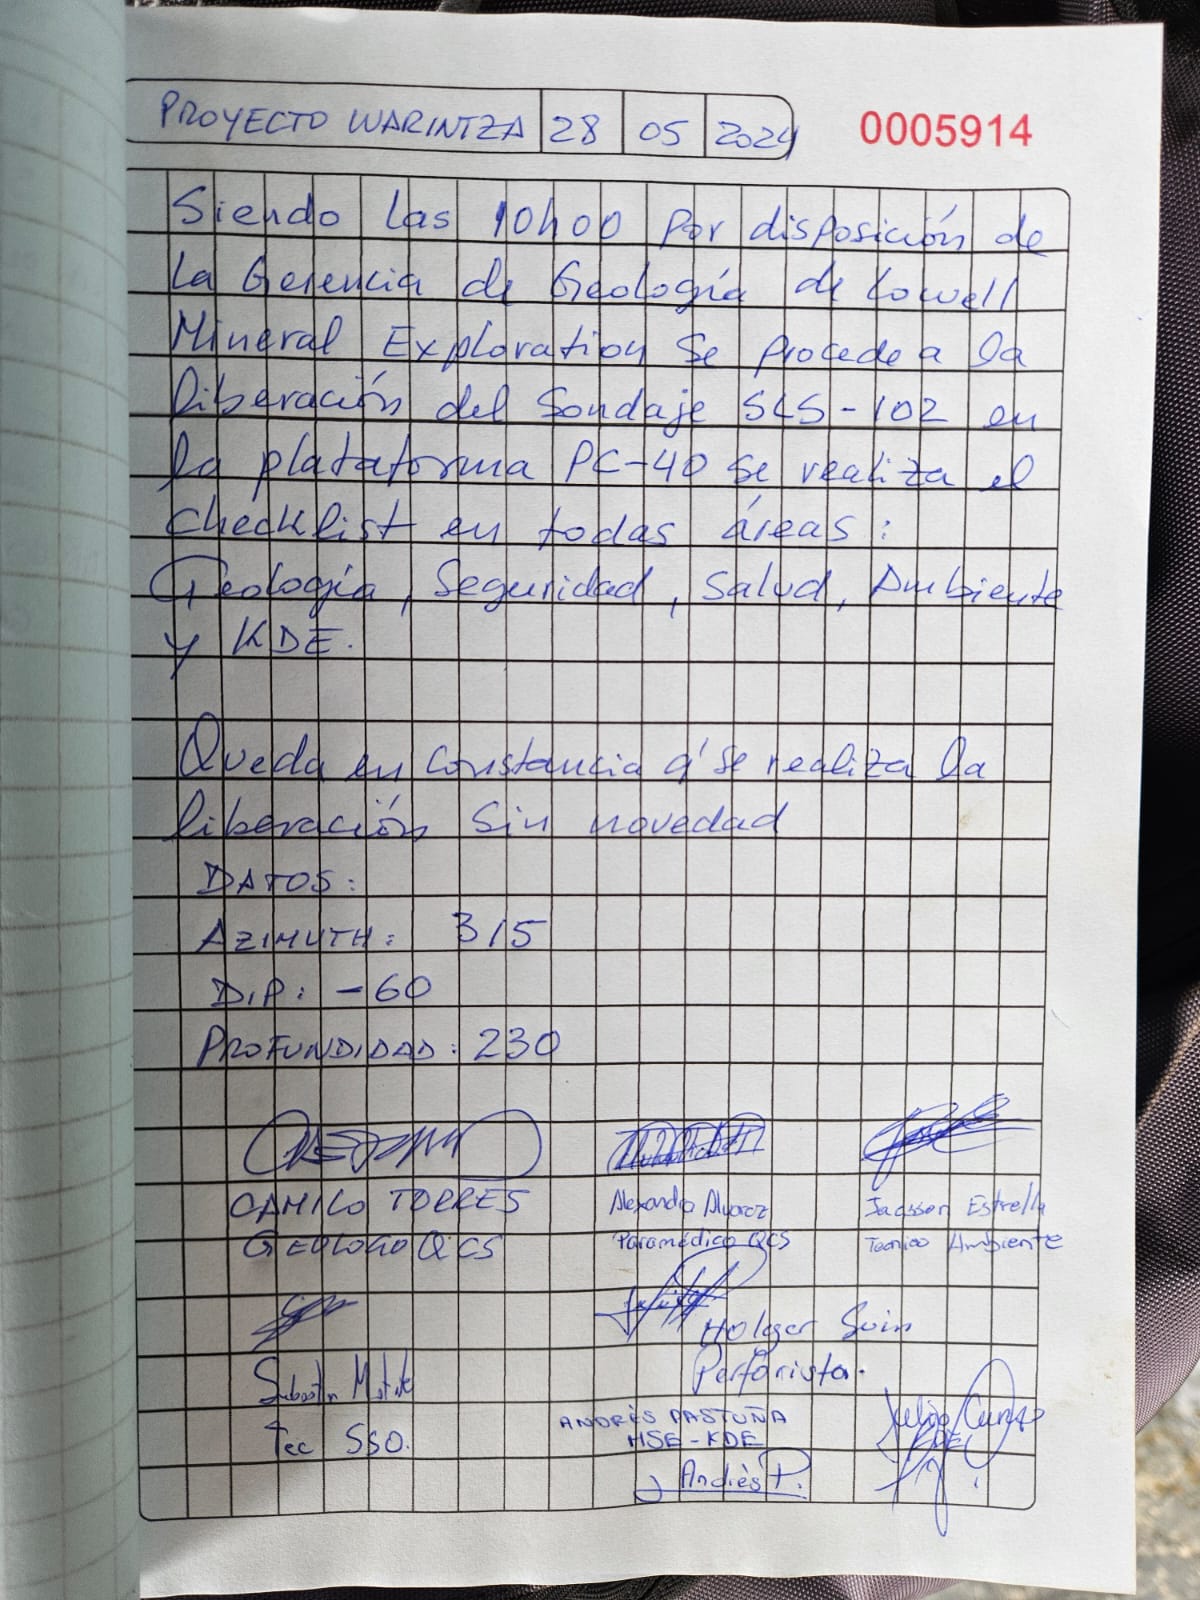 PROYECTO WARINTZA 28 05 2024 0005914
Siendo las 10h00 por disposición de
la Gerencia de Geología de Lowell
Mineral Exploration se procede a la
liberación del Sondaje SLS-102 en
la plataforma PC-40 se realiza el
checklist en todas áreas:
Geología, Seguridad, Salud, Ambiente
y KDE.
Queda en constancia q' se realiza la
liberación sin novedad
DATOS:
AZIMUTH: 315
DIP: -60
PROFUNDIDAD: 230
CAMILO TORRES Alexandra Alvarez Jacsson Estrella
GEOLOGO QCS Paramédico QCS Tecnico Ambiente
Holger Suin
Perforista.
Tec SSO.
ANDRÈS PASTUÑA Julio
HSE-KDE KDE
Andrès P.